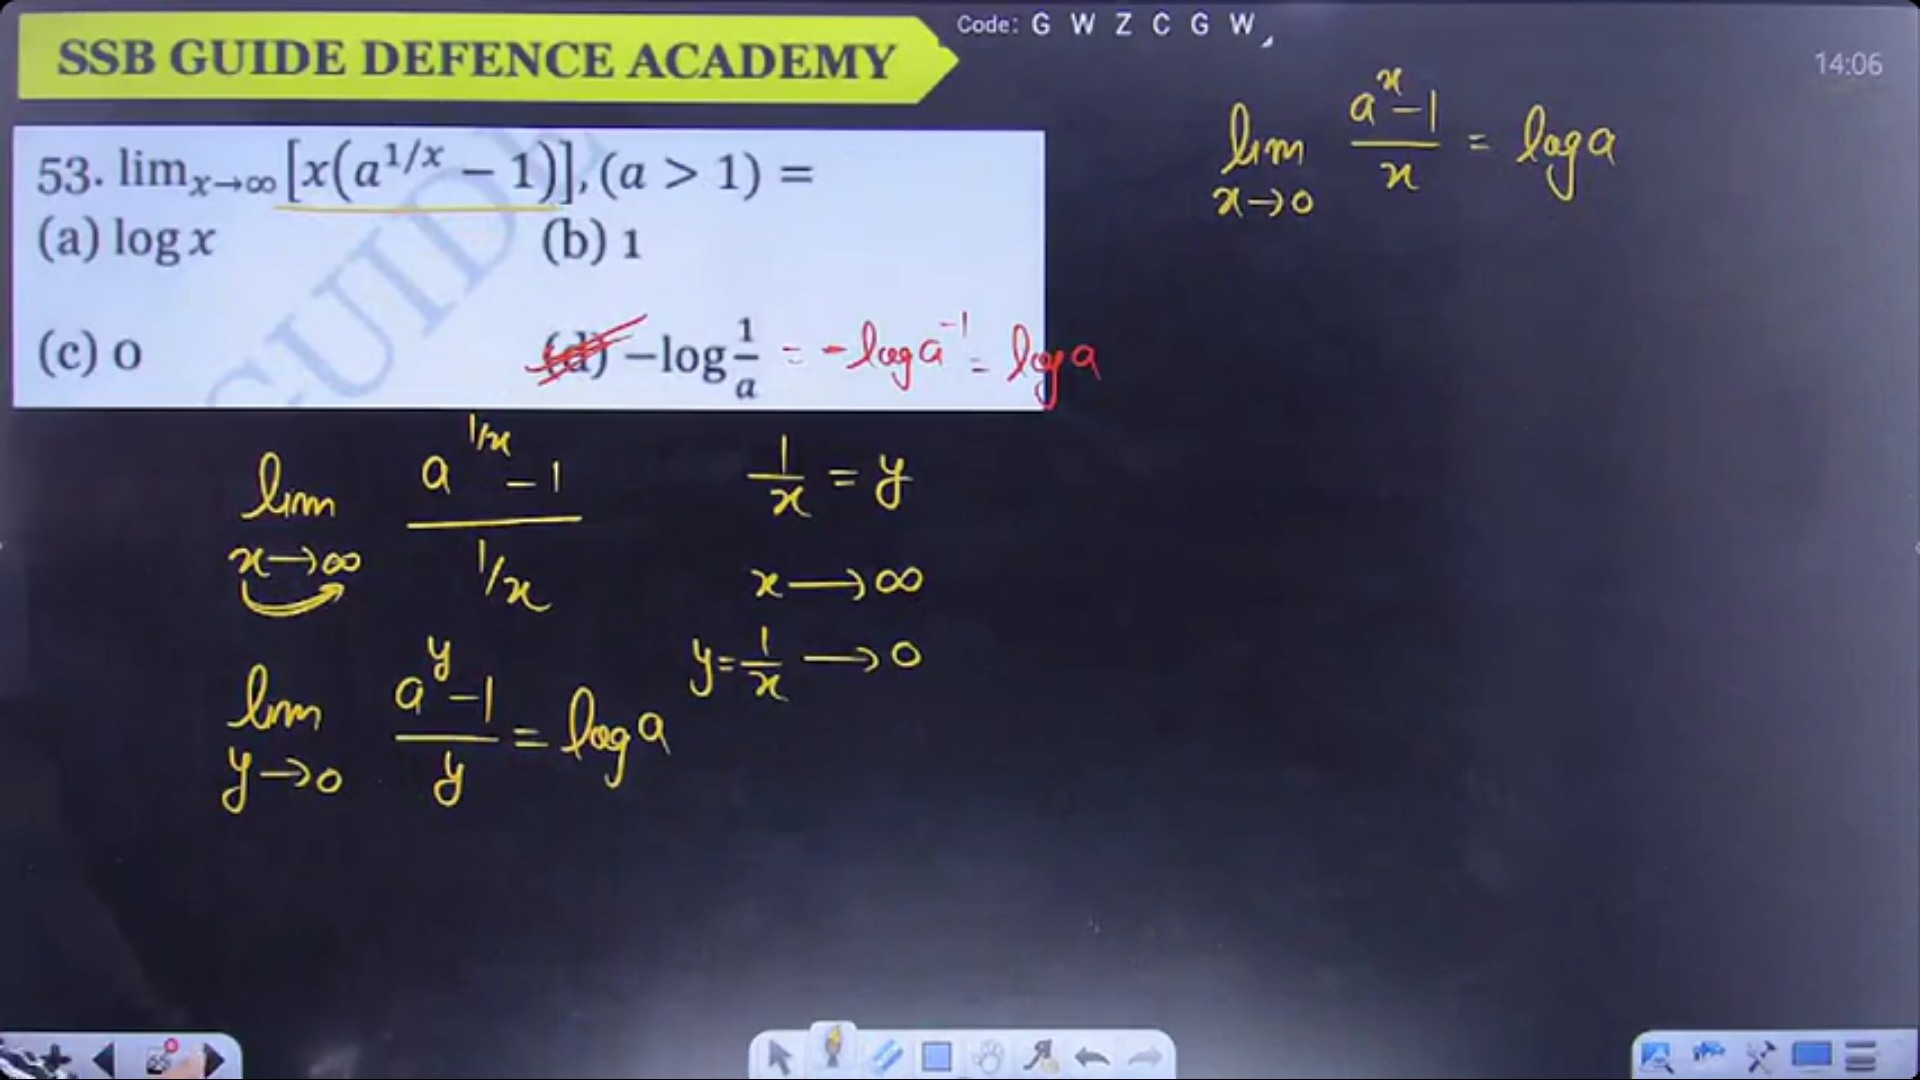 Code: G W Z C G W
SSB GUIDE DEFENCE ACADEMY
14:06
53. lim x→∞ [x(a^1/x − 1)], (a > 1) =
(a) log x (b) 1
(c) 0 (d) −log 1/a = -log a^-1 = log a
GUIDE
lim x→0 (a^x - 1)/x = log a
lim x→∞ (a^1/x - 1)/(1/x)
1/x = y
x → ∞
y = 1/x → 0
lim y→0 (a^y - 1)/y = log a